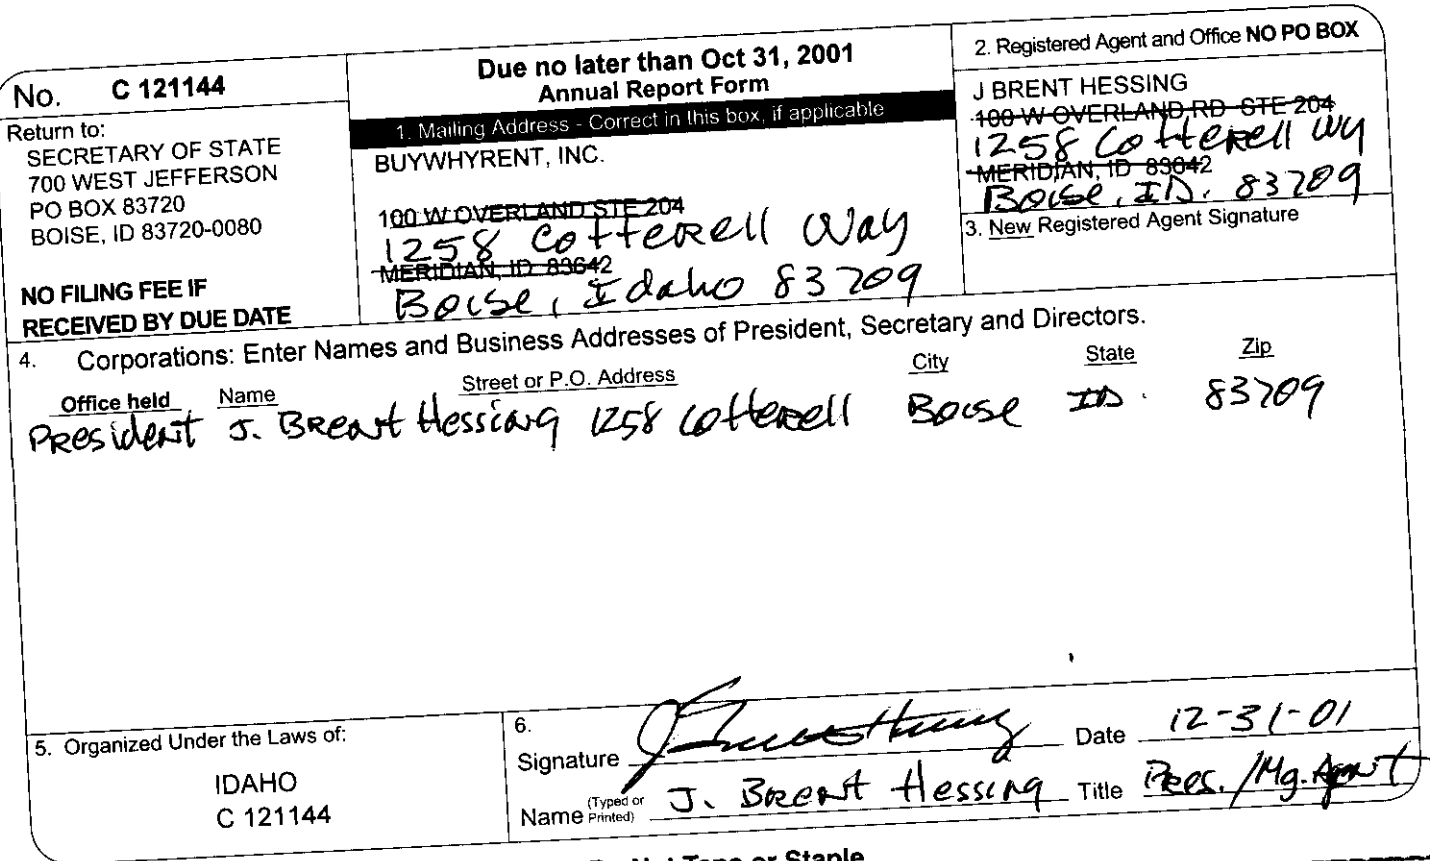 No. C 121144
Return to:
SECRETARY OF STATE
700 WEST JEFFERSON
PO BOX 83720
BOISE, ID 83720-0080
NO FILING FEE IF
RECEIVED BY DUE DATE
Due no later than Oct 31, 2001
Annual Report Form
1. Mailing Address - Correct in this box, if applicable
BUYWHYRENT, INC.
100 W OVERLAND STE 204
1258 Cotterell Way
MERIDIAN, ID 83642
Boise, Idaho 83709
2. Registered Agent and Office NO PO BOX
J BRENT HESSING
100 W OVERLAND RD STE 204
1258 Cotterell Wy
MERIDIAN, ID 83642
Boise, ID. 83709
3. New Registered Agent Signature
4. Corporations: Enter Names and Business Addresses of President, Secretary and Directors.
Office held Name Street or P.O. Address City State Zip
President J. Brent Hessing 1258 Cotterell Boise ID. 83709
5. Organized Under the Laws of:
IDAHO
C 121144
6.
Signature Date 12-31-01
Name (Typed or Printed) J. Brent Hessing Title Pres./Mg. Agent
Do Not Tape or Staple